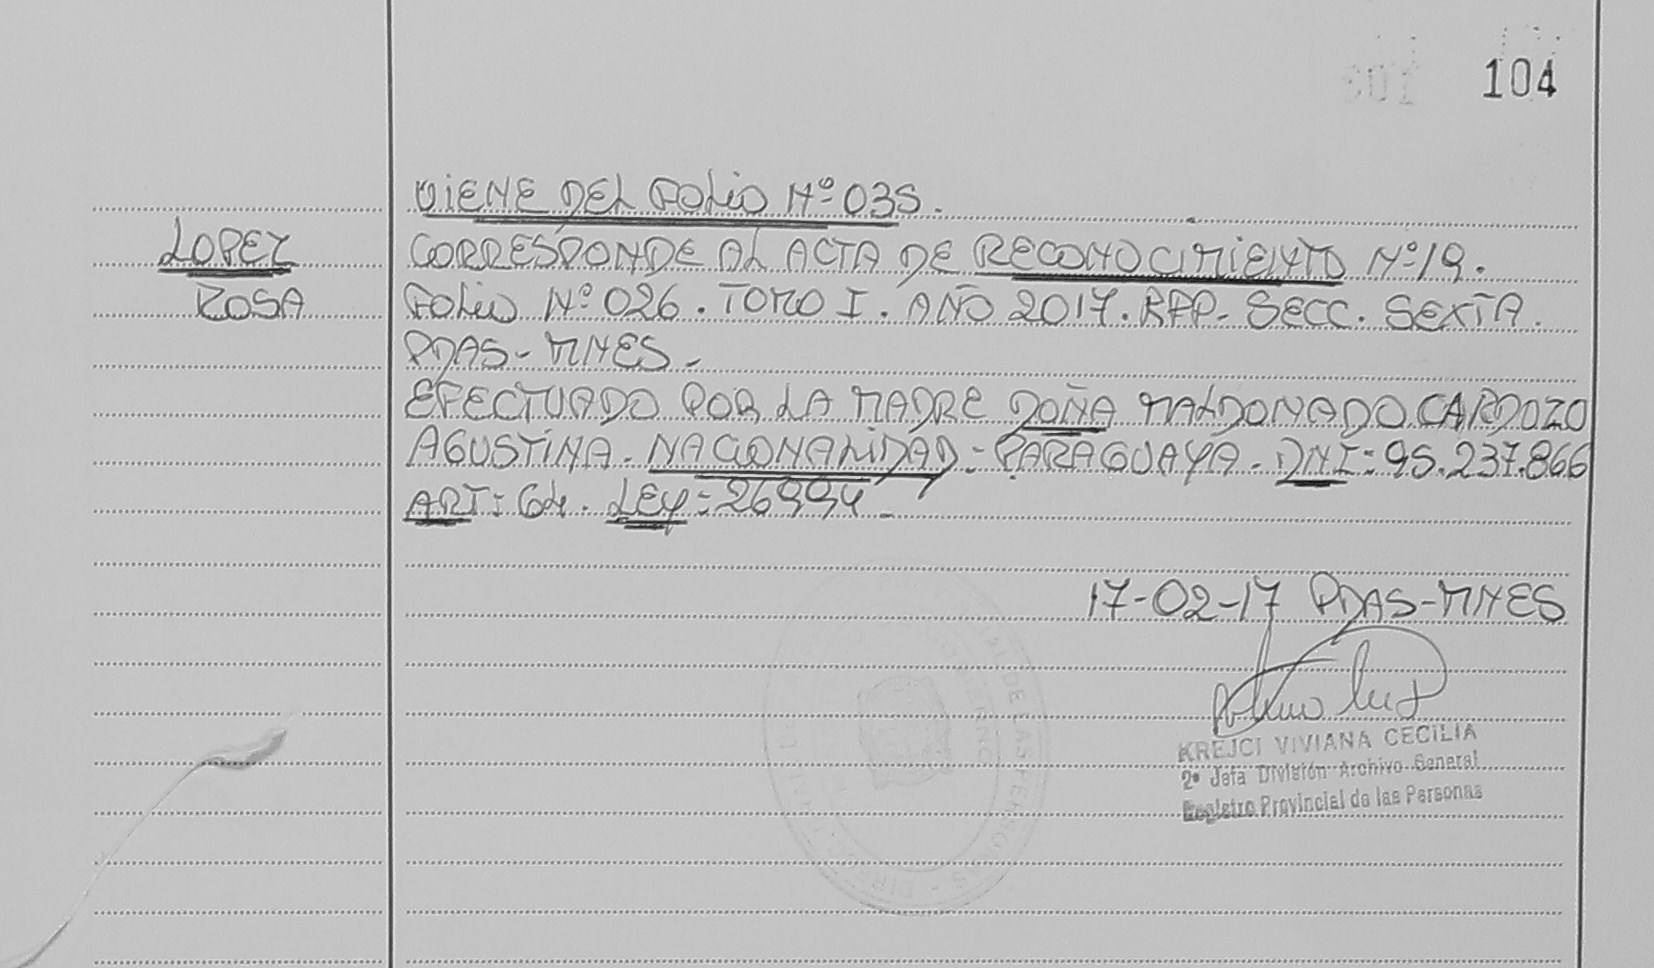 104
VIENE DEL FOLIO Nº 035.
LOPEZ
CORRESPONDE AL ACTA DE RECONOCIMIENTO Nº 19.
ROSA
FOLIO Nº 026. TOMO I. AÑO 2017. RPP. SECC. SEXTA.
PDAS-MNES-
EFECTUADO POR LA MADRE DOÑA MALDONADO CARDOZO
AGUSTINA. NACIONALIDAD: PARAGUAYA. DNI: 95.237.866
ART: 64. LEY: 26994-
17-02-17 PDAS-MNES
KREJCI VIVIANA CECILIA
2º Jefa División Archivo General
Registro Provincial de las Personas
DE LAS PERSONAS